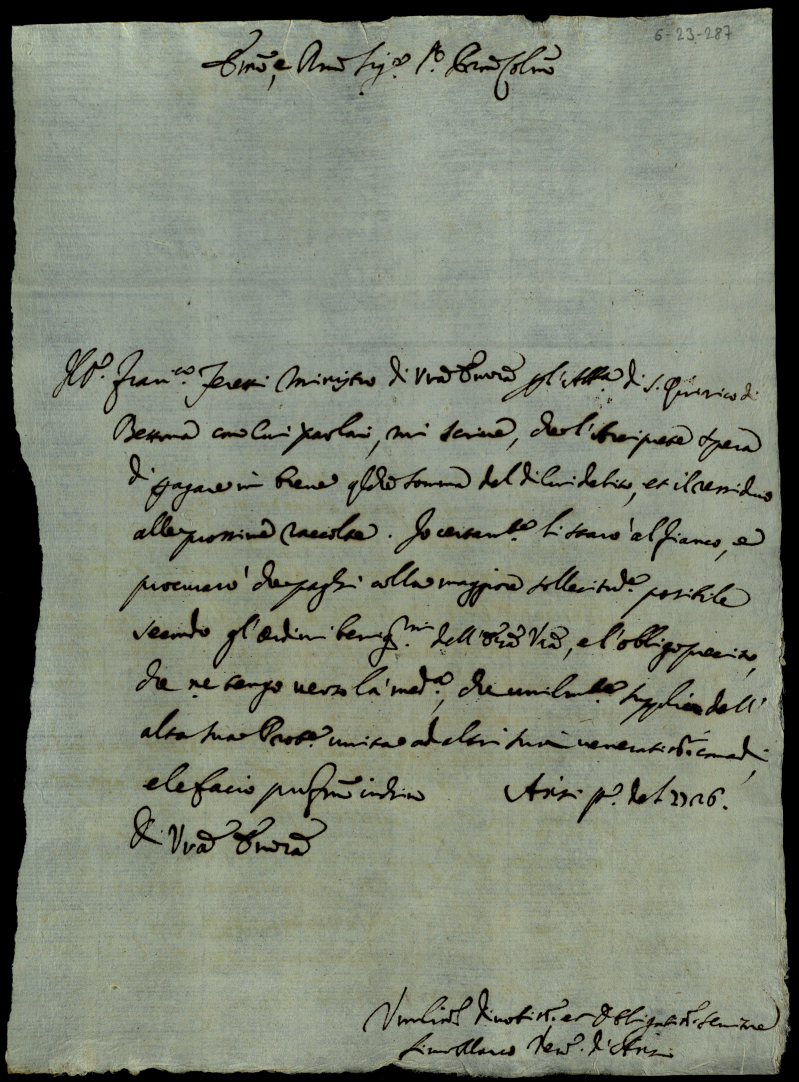 6-23-287
Em̃o, e Rm̃o Sig.r P.ro Coll.mo
Fran.co Ministro di Vrã Em̃za di S. Quirico di
con lui parlai, mi scrive, che l'Arciprete spera
di pagare in breve somma del di lui debito, et il residuo
alle prossime raccolte. Io certam.te li starò al fianco, e
procurarò che paghi colla maggiore sollecitud.e possibile
secondo gl'ordini benig.mi dell'Em̃za Vrã, e l'obligo preciso,
che ne tengo verso la med.a, che umilm.te supplico dell'
alta sua Prot.ne unita ad altri suoi veneratis.mi comandi,
e le facio prof.mo inchino Assisi p.o 1726.
Di Vrã Em̃za
Umiliss.o Divotis.o et Obligatis.o Servitore
Vesc.o d'Assisi